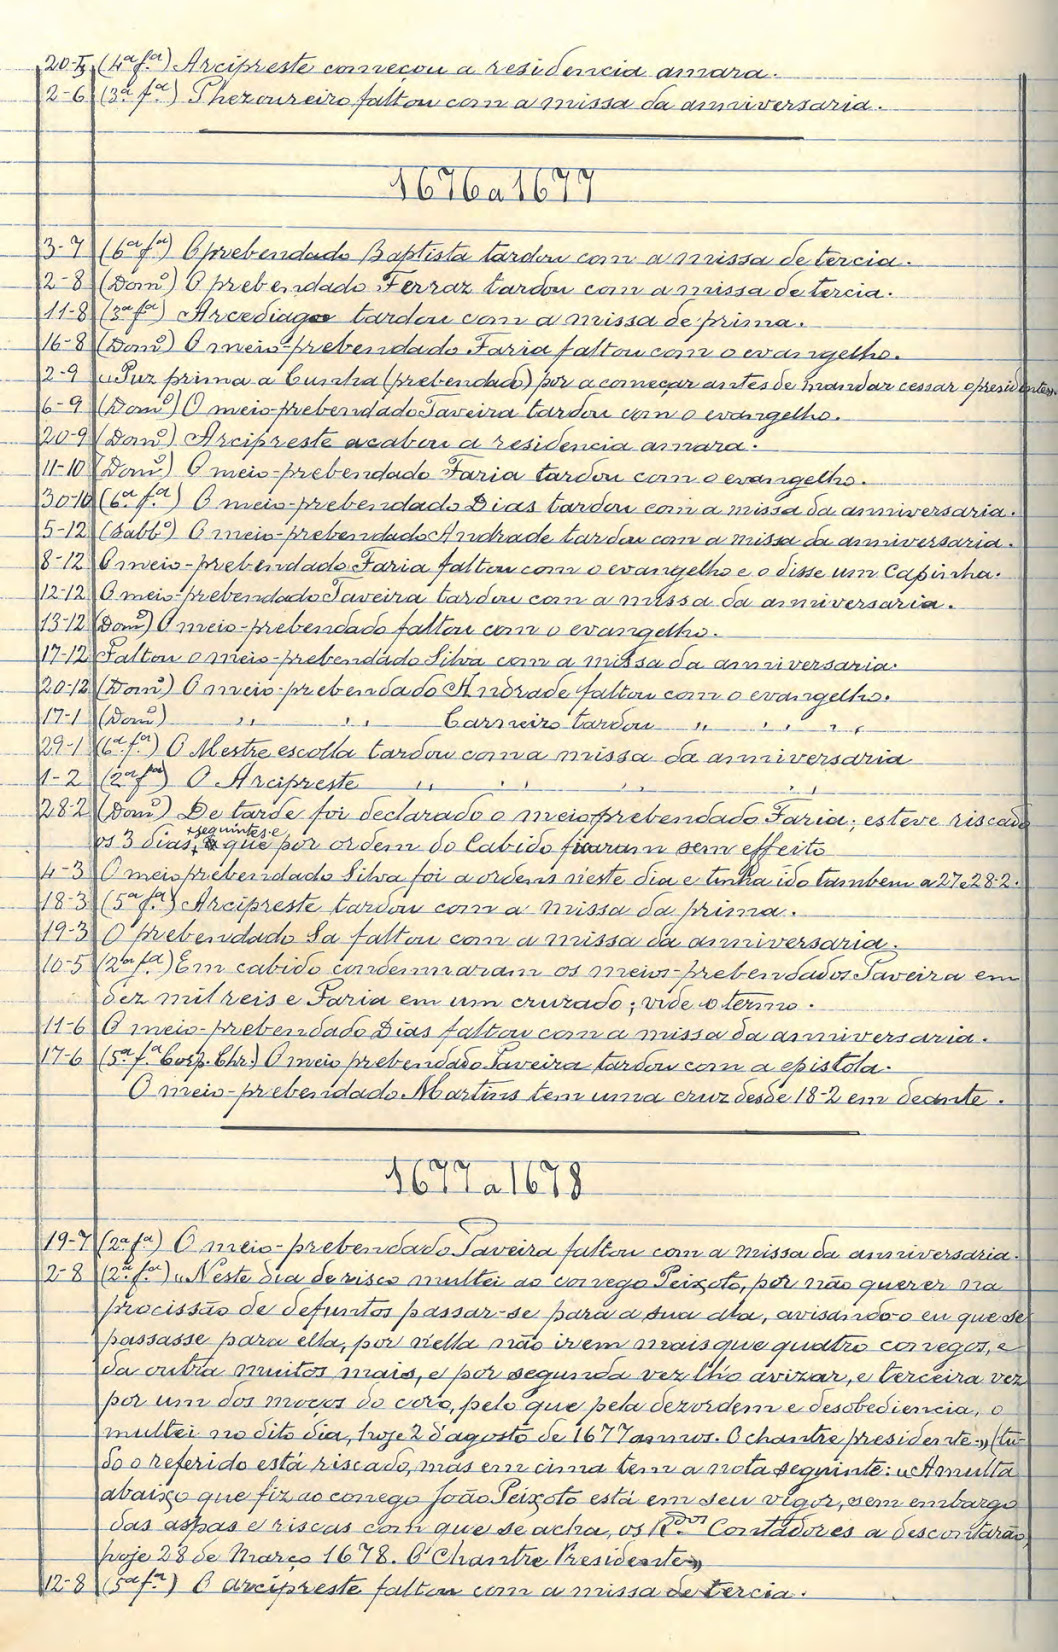 20-5 (4ª fª) Arcipreste começou a residencia amara.
2-6 (3ª fª) Thezoureiro faltou com a missa da anniversaria.
1676 a 1677
3-7 (6ª fª) O prebendado Baptista tardou com a missa de tercia.
2-8 (Domº) O prebendado Ferraz tardou com a missa de tercia.
11-8 (3ª fª) Arcediago tardou com a missa de prima.
16-8 (Domº) O meio-prebendado Faria faltou com o evangelho.
2-9 „Puz prima a Cunha (prebendado) por a começar antes de mandar cessar o presidente„.
6-9 (Domº) O meio-prebendado Taveira tardou com o evangelho.
20-9 (Domº) Arcipreste acabou a residencia amara.
11-10 (Domº) O meio-prebendado Faria tardou com o evangelho.
30-10 (6ª fª) O meio-prebendado Dias tardou com a missa da anniversaria.
5-12 (Sabbº) O meio-prebendado Andrade tardou com a missa da anniversaria.
8-12 O meio-prebendado Faria faltou com o evangelho e o disse um Capinha.
12-12 O meio-prebendado Taveira tardou com a missa da anniversaria.
13-12 (Domº) O meio-prebendado faltou com o evangelho.
17-12 Faltou o meio-prebendado Silva com a missa da anniversaria.
20-12 (Domº) O meio-prebendado Andrade faltou com o evangelho.
17-1 (Domº) „ „ Carneiro tardou „ „ „
29-1 (6ª fª) O Mestre escolla tardou com a missa da anniversaria
1-2 (2ª fª) O Arcipreste „ „ „ „
28-2 (Domº) De tarde foi declarado o meio-prebendado Faria; esteve riscado
os 3 dias + seguintes e que por ordem do Cabido ficaram sem effeito
4-3 O meio prebendado Silva foi a ordens n'este dia e tinha ido tambem a 27 e 28-2.
18-3 (5ª fª) Arcipreste tardou com a missa da prima.
19-3 O prebendado Sa faltou com a missa da anniversaria.
10-5 (2ª fª) Em cabido condemnaram os meios-prebendados Taveira em
dez mil reis e Faria em um cruzado; vide o termo.
11-6 O meio-prebendado Dias faltou com a missa da anniversaria.
17-6 (5ª fª Corp. Chr.) O meio prebendado Taveira tardou com a epistola.
O meio-prebendado Martins tem uma cruz desde 18-2 em deante.
1677 a 1678
19-7 (2ª fª) O meio-prebendado Taveira faltou com a missa da anniversaria.
2-8 (2ª fª) „Neste dia de risco multei ao conego Peixoto, por não querer na
procissão de defuntos passar-se para a sua ala, avisando-o eu que se
passasse para ella, por n'ella não irem mais que quatro conegos, e
da outra muitos mais, e por segunda vez lh'o avizar, e terceira vez
por um dos moços do coro, pelo que pela dezordem e desobediencia, o
multei no dito dia, hoje 2 d'agosto de 1677 annos. O chantre presidente„ (tu-
do o referido está riscado, mas em cima tem a nota seguinte: „A multa
abaixo que fiz ao conego João Peixoto está em seu vigor, sem embargo
das aspas e riscas com que se acha, os R.dos Contadores a descontarão,
hoje 28 de Março 1678. O Chantre Presidente„
12-8 (5ª fª) O arcipreste faltou com a missa de tercia.